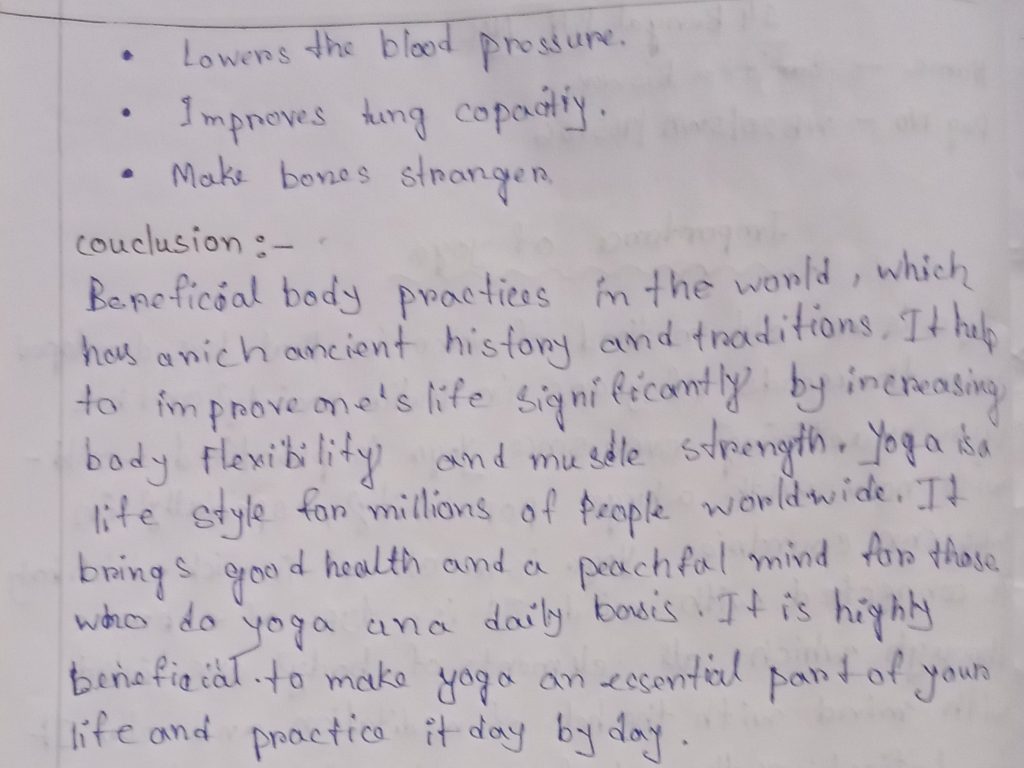 • Lowers the blood prossure.
• Improves lung copacitiy.
• Make bones stranger.
couclusion :-
Beneficial body practices in the world, which
has a rich ancient history and traditions. It help
to improve one's life significantly by increasing
body flexibility and musdle strength. Yoga is a
life style for millions of people worldwide. It
brings good health and a peachfal mind for those
who do yoga ana daily basis. It is highly
beneficial. to make yoga an essential part of your
life and practice it day by day.